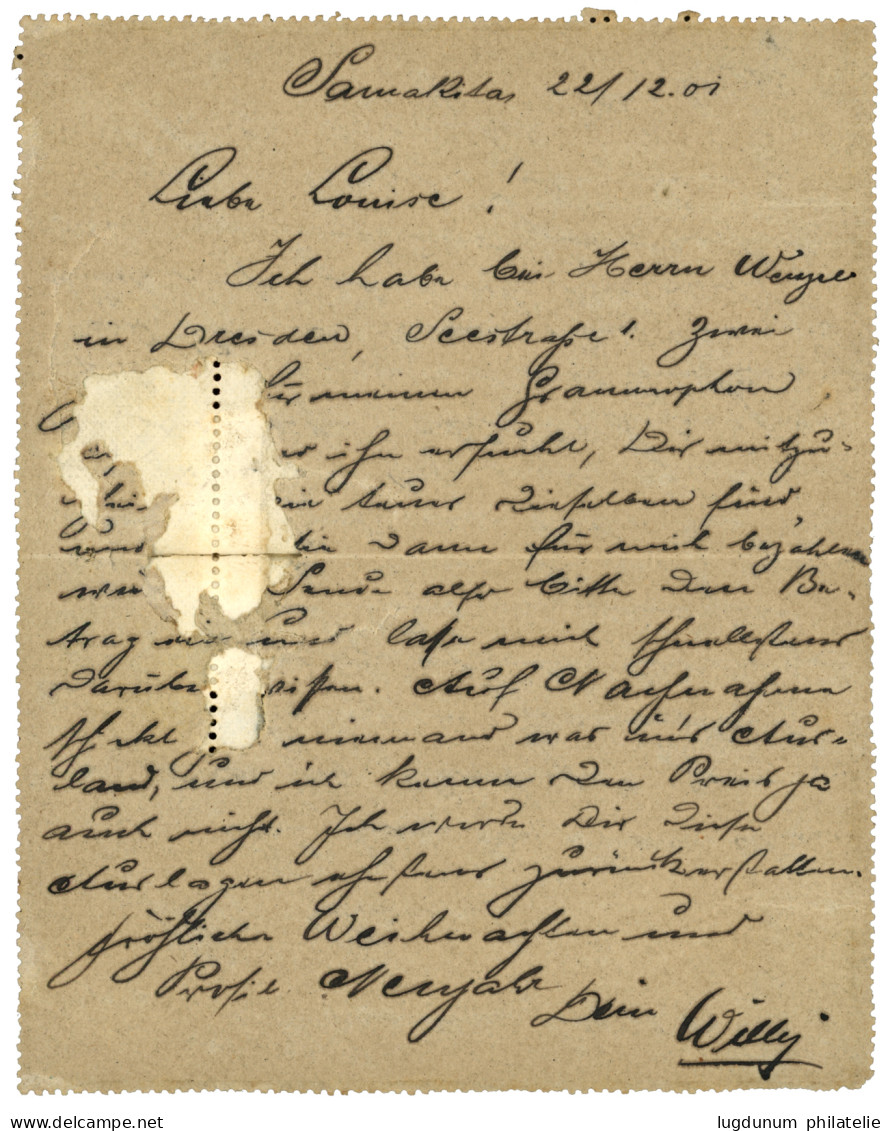 Samakita, 22/12.01
Liebe Louise!
Ich habe bei Herrn Wenzel
in Dresden, Seestraße 1. zwei
für meinen Grammophon
ihn ersucht, Dir mitzu-
teuer dieselben sind
und Sie dann für mich bezahlen
Sende also bitte den Be-
trag ein und lasse mich schnellstens
darüber wissen. Auf Nachnahme
schickt niemand was ins Aus-
land, und ich kenne den Preis ja
auch nicht. Ich werde Dir diese
Auslagen ehestens zurückerstatten.
Fröhliche Weihnachten und
Prosit Neujahr
Dein Willy
lugdunum philatelie